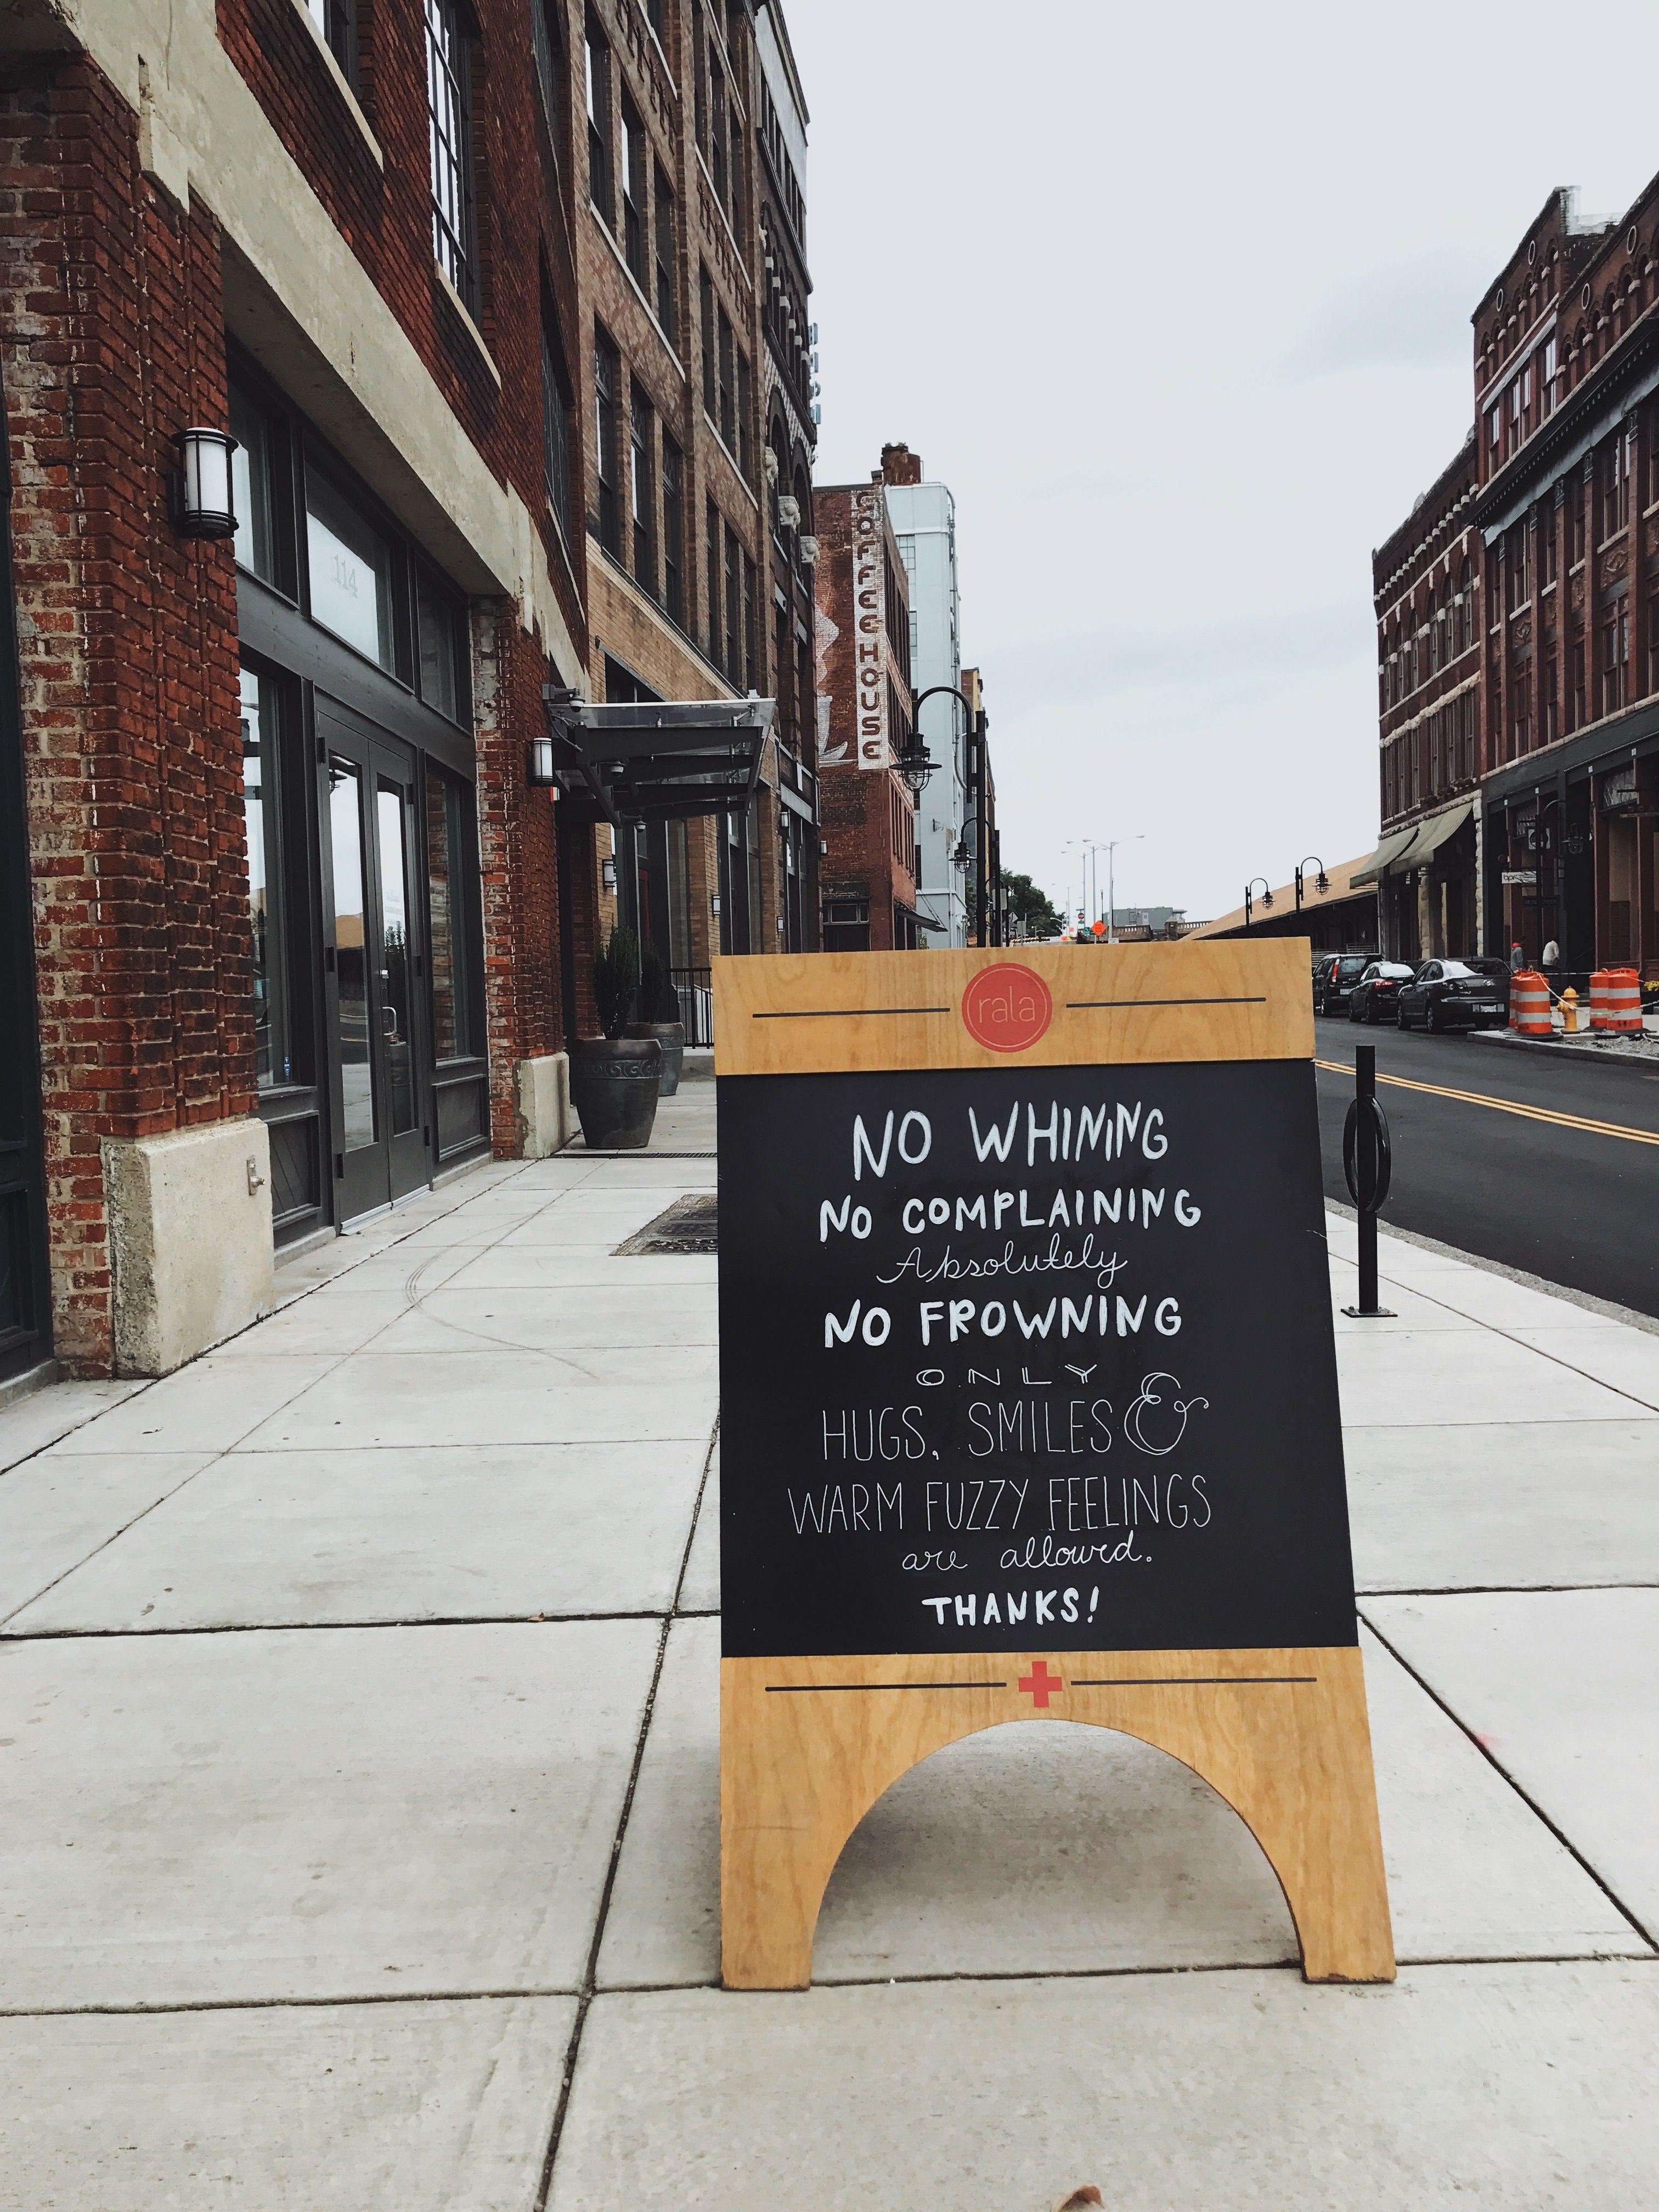 114
COFFEE HOUSE
rala
NO WHINING
NO COMPLAINING
Absolutely
NO FROWNING
ONLY
HUGS, SMILES &
WARM FUZZY FEELINGS
are allowed.
THANKS!